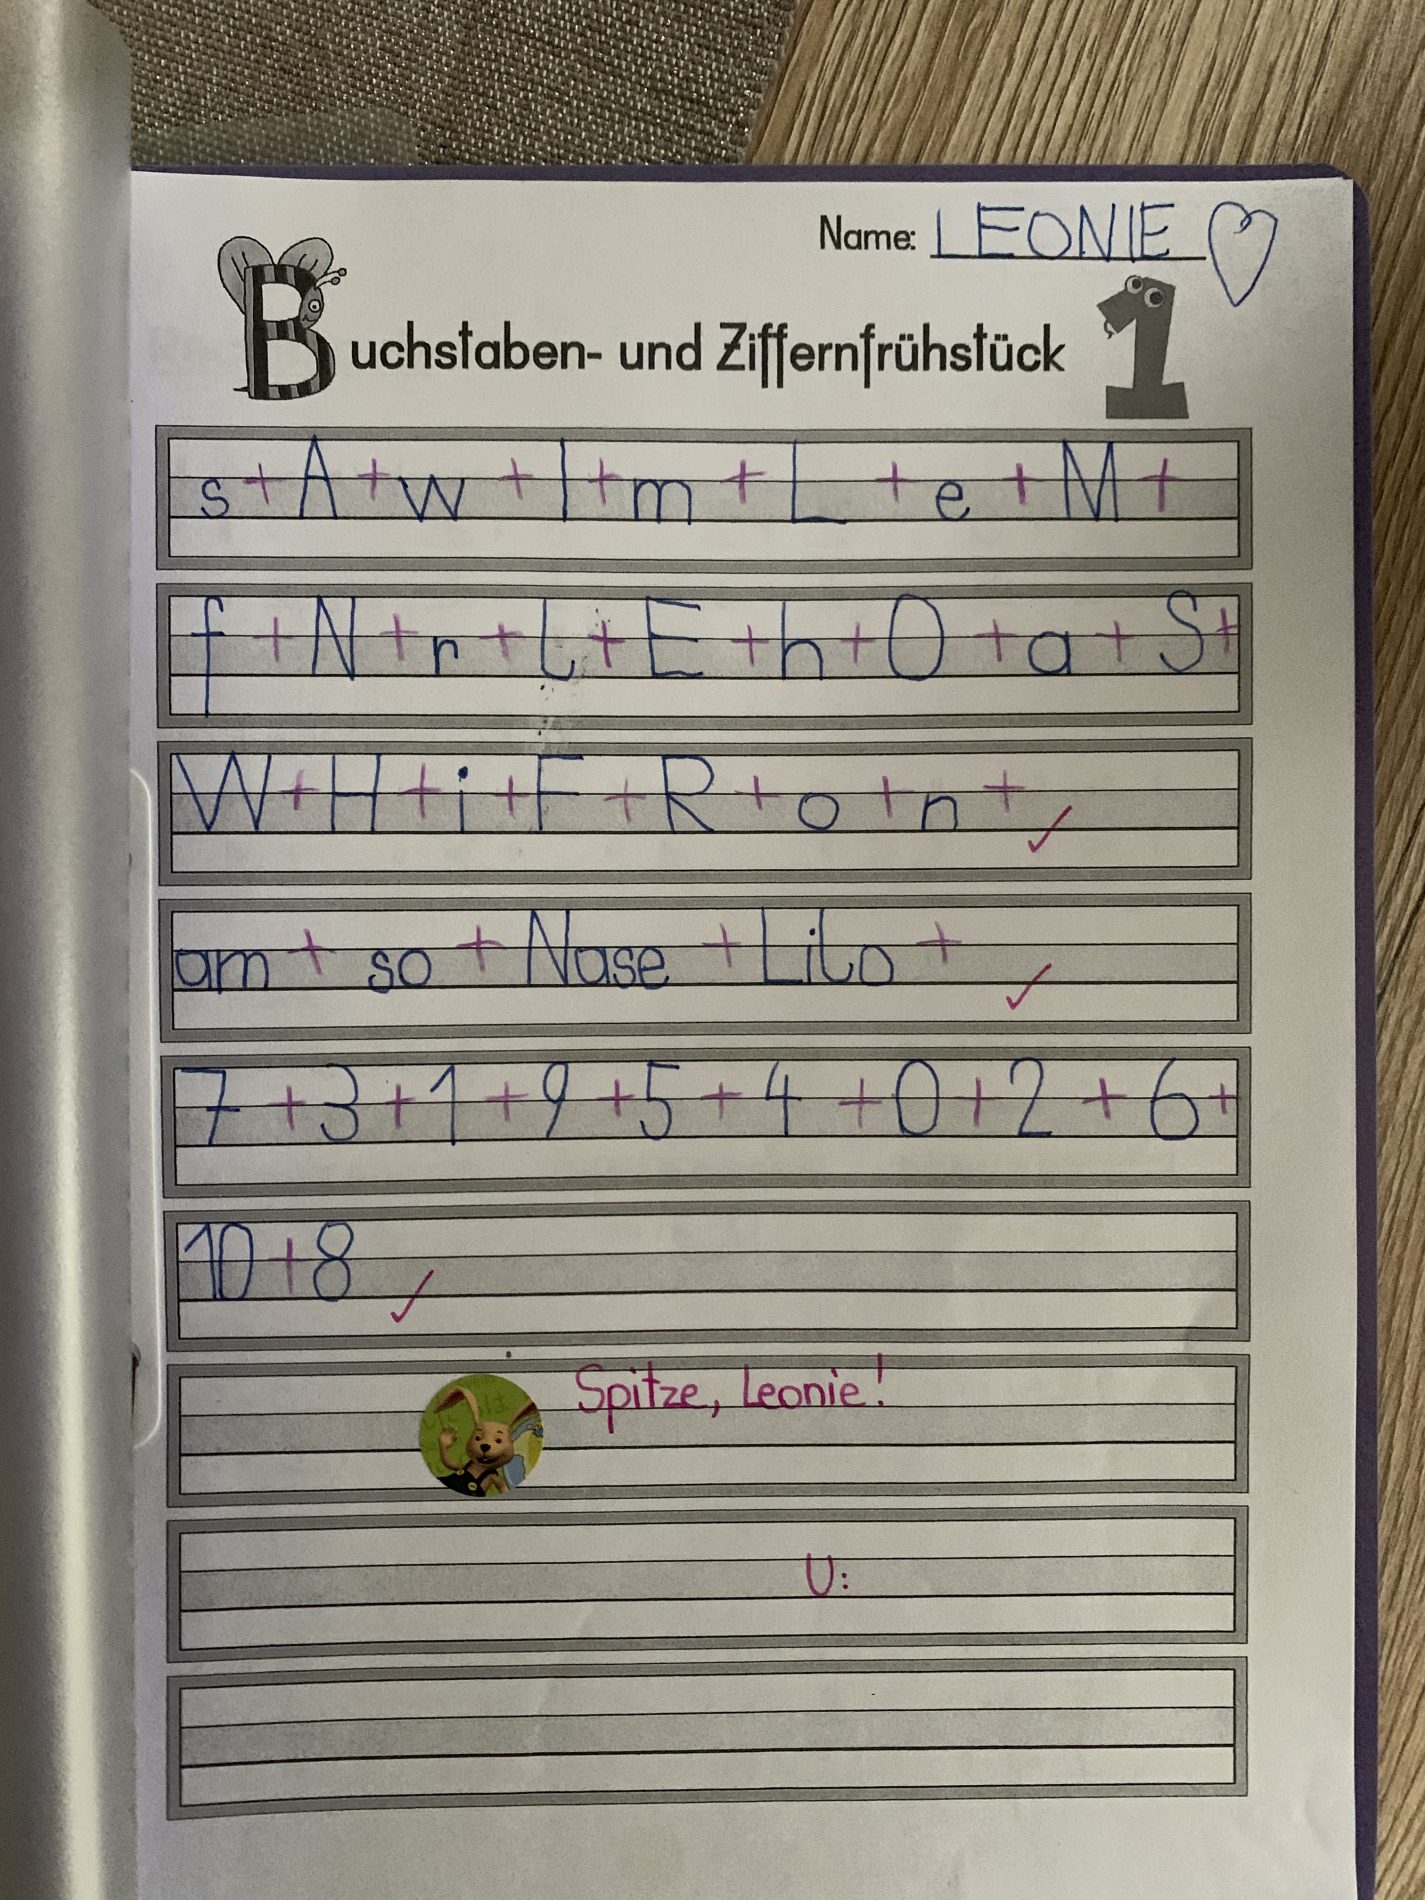 Name: LEONIE
Buchstaben- und Ziffernfrühstück 1
s + A + w + I + m + L + e + M +
f + N + r + l + E + h + O + a + S +
W + H + i + F + R + o + n + ✓
am + so + Nase + Lilo + ✓
7 + 3 + 1 + 9 + 5 + 4 + 0 + 2 + 6 +
10 + 8 ✓
Spitze, Leonie!
U: